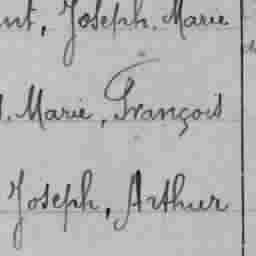 nt, Joseph. Marie
. Marie, François
Joseph, Arthur